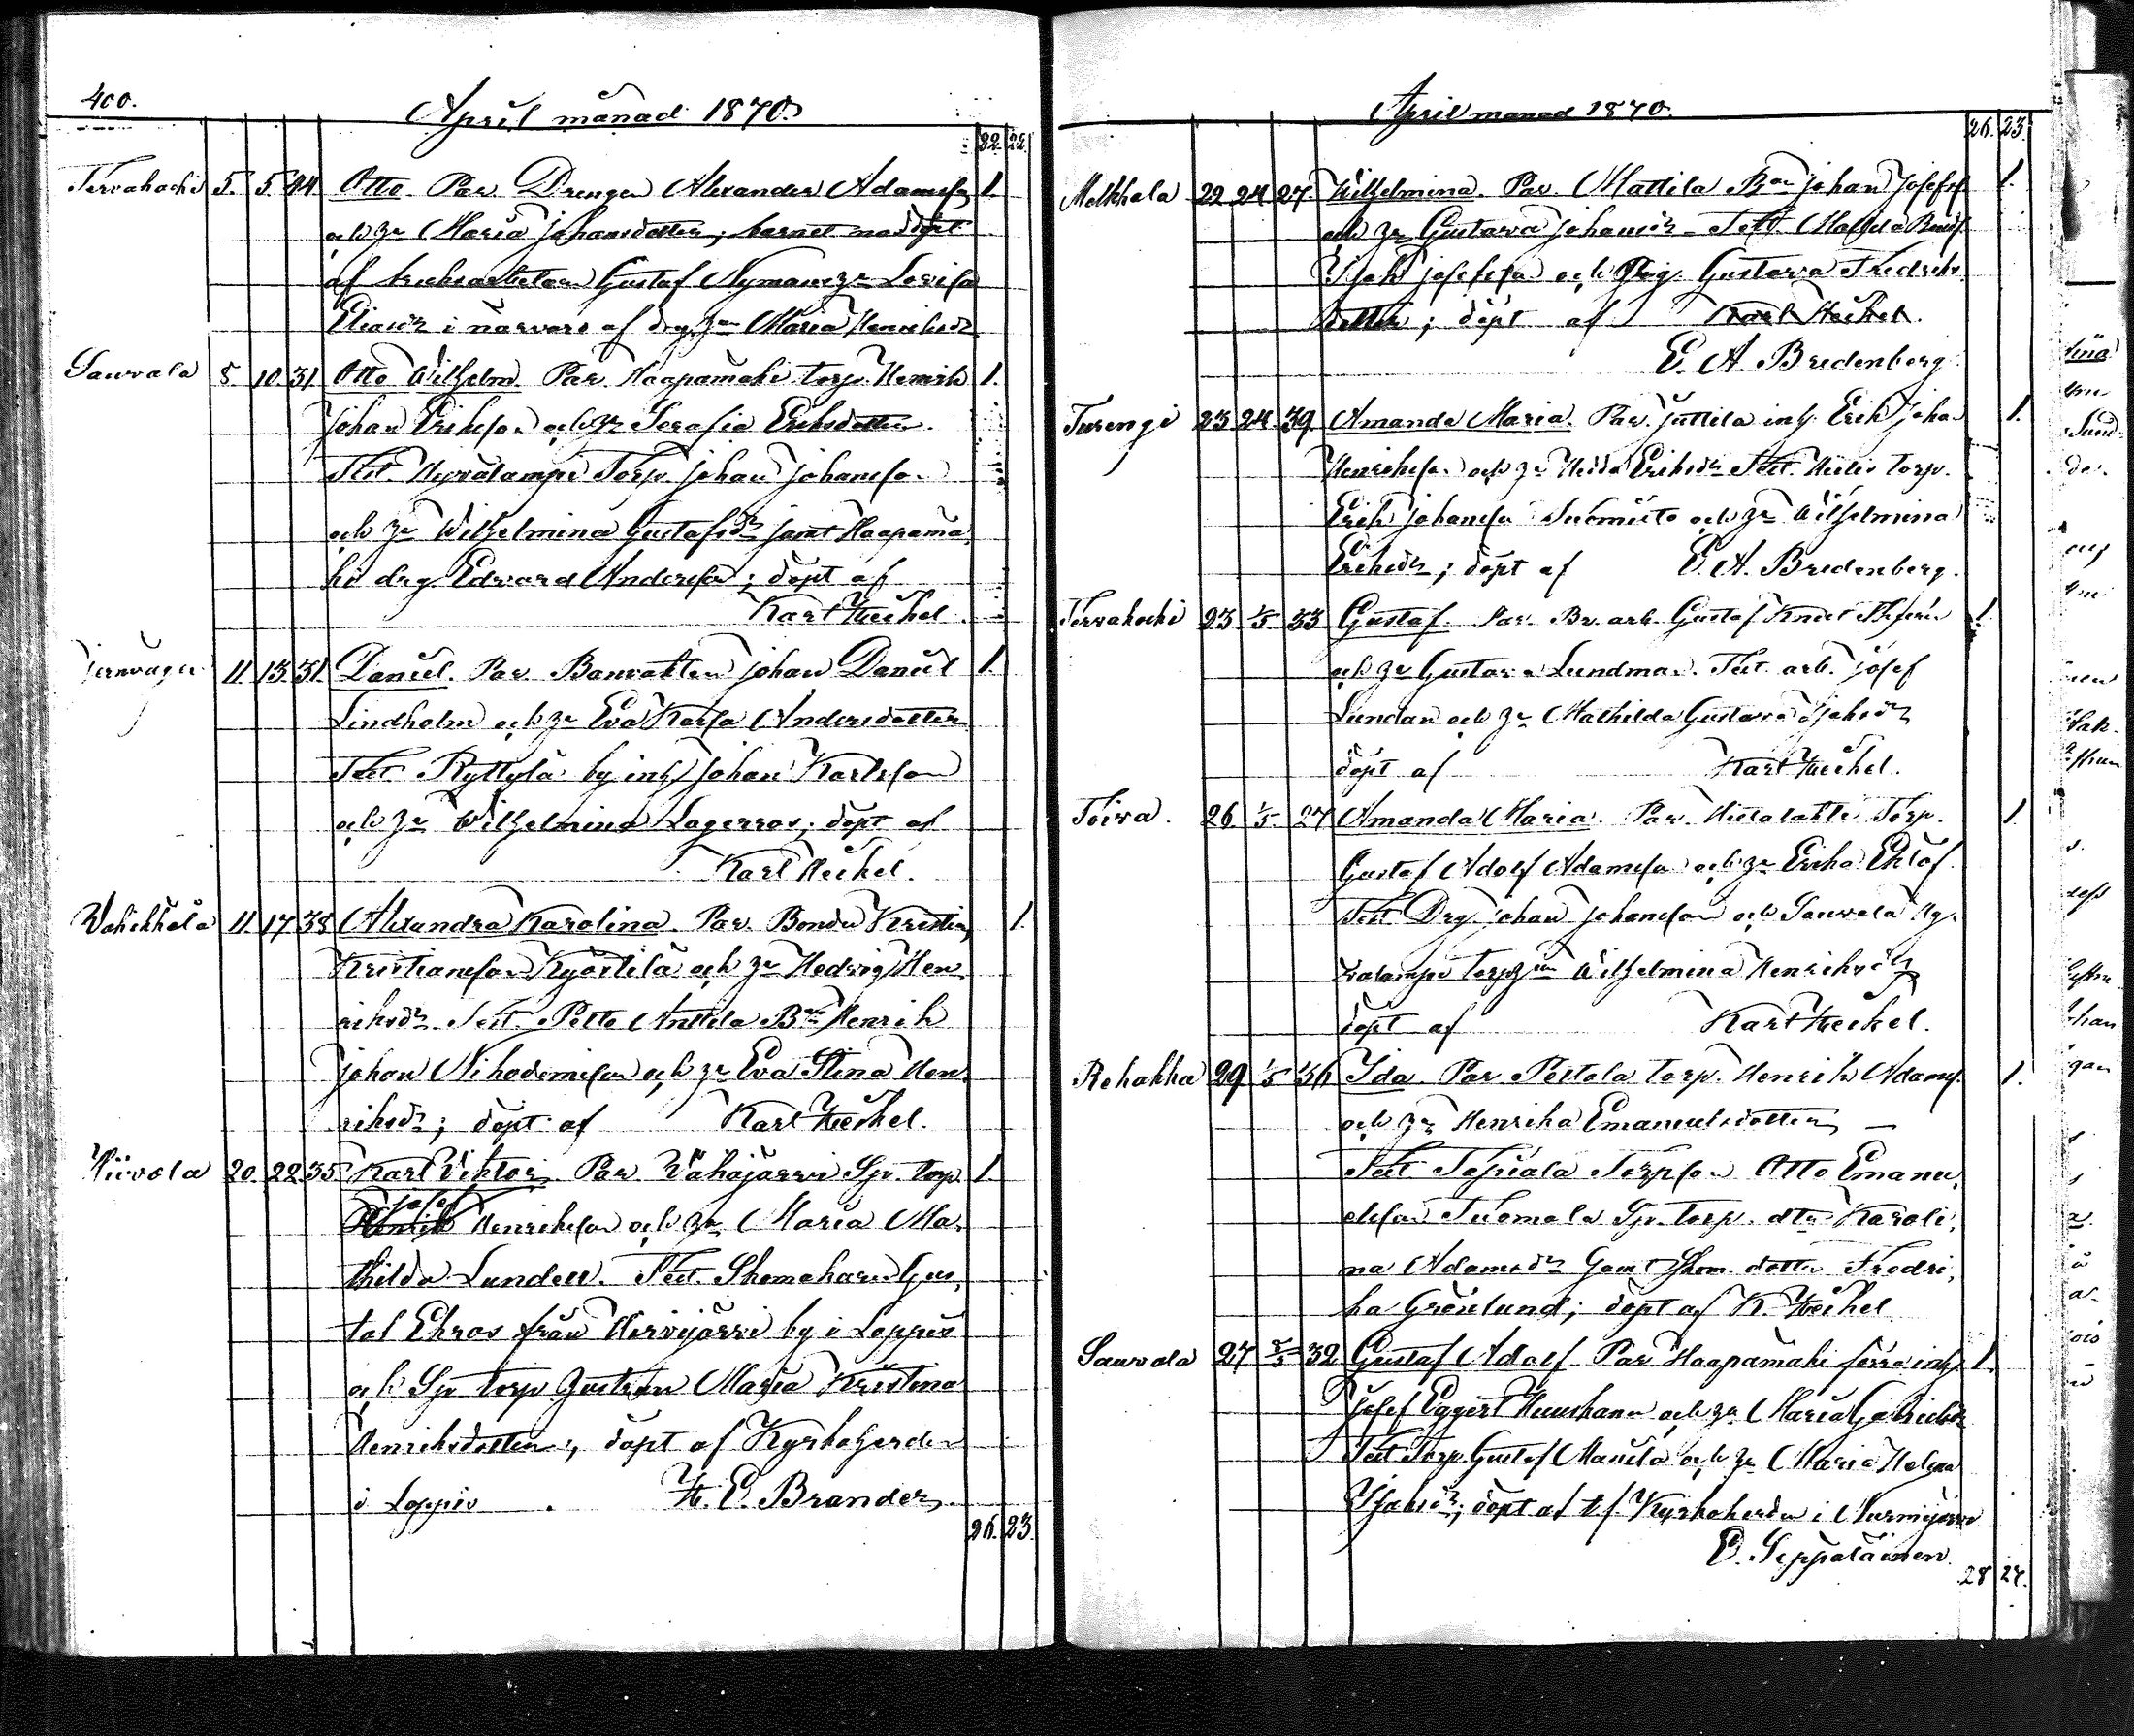 400.
April månad 1870.
22. 22.
Tervakoski 5. 5. 44 Otto. Par. Drengen Alexander Adamsson 1.
och h:u Maria Johansdotter; barnet nöddöpt
af bruksarbetaren Gustaf Nymans h:u Lovisa
Eliasd:r i närvaro af drg. h:u Maria Henriksd:r
Sauvala 8 10. 31 Otto Wilhelm. Par. Haapamäki torp. Henrik 1.
Johan Eriksson och h:u Serafia Eriksdotter.
Test. Hyvälampi Torp. Johan Johansson
och h:u Wilhelmina Gustafsd:r samt Haapamä-
ki drg. Edvard Andersson; döpt af
Karl Heikel.
Jernvägen 11. 13. 31. Daniel. Par. Banvakten Johan Daniel 1.
Lindholm och h:u Eva Kaisa Andersdotter
Test. Ryttylä by inh. Johan Karlsson
och h:u Wilhelmina Lagerroos; döpt af
Karl Heikel.
Vahikkala 11 17 38 Alexandra Karolina. Par. Bonden Kristian 1.
Kristiansson Kyöstilä och h:u Hedvig Hen-
riksd:r Test. Pelto Anttila B:den Henrik
Johan Nikodemisson och h:u Eva Stina Hen-
riksd:r; döpt af Karl Heikel.
Viivola 20. 22 35 Karl Viktor. Par. Vähäjärvi Sp. torp. 1.
Josef
Henrik Henriksson och h:u Maria Ma-
thilda Lundell. Test. Skomakaren Gus-
taf Ekroos från Hirvijärvi by i Loppis
och Sp. torp. hustrun Maria Kristina
Henriksdotter; döpt af Kyrkoherden
i Loppis. K. E. Brander.
26. 23.
April månad 1870.
26. 23.
Melkkala 22 24 27. Wilhelmina. Par. Mattila B:den Johan Josefss. 1.
och h:u Gustava Johansd:r Test. Mattila Bond.
Isak Josefsson och Pig. Gustava Fredriks-
dotter; döpt af Karl Heikel.
E. A. Bredenberg.
Turengi 23 24. 39 Amanda Maria. Par. Juttila inh. Erik Johan 1.
Henriksson och h:u Hedda Eriksd:r Test. torp.
Erik Johansson Suomisto och h:u Wilhelmina
Eriksd:r; döpt af E. A. Bredenberg.
Tervakoski 23 1/5 33 Gustaf. Par. Br. arb. Gustaf Knut 1.
och h:u Gustava Lundman. Test. arb. Josef
Lundan och h:u Mathilda Gustava Isaksd:r
döpt af Karl Heikel.
Toiva. 26 1/5 27 Amanda Maria. Par. Torp. 1.
Gustaf Adolf Adamsson och h:u Erika Eklöf.
Test. Drg. Johan Johansson och Sauvala Hy-
välampi torp. h:un Wilhelmina Henriksd:r
döpt af Karl Heikel.
Rehakka 29 1/5 36 Ida. Par. Pietola torp. Henrik Adamss. 1.
och h:u Henrika Emanuelsdotter
Test. Tapiala Torpson Otto Emanu-
elsson Tuomola Sp. torp. dtr Karoli-
na Adamsd:r samt Skom. dotter Fredri-
ka Grönlund; döpt af K. Heikel
Sauvala 27 5/5 32 Gustaf Adolf. Par. Haapamäki förra inh. 1.
Josef Eggert och h:u Maria
Test. Torp. Gustaf Manila och h:u Maria Helena
Isaksd:r; döpt af t.f. Kyrkoherden i Nurmijärvi
E. Seppäläinen.
28 27.